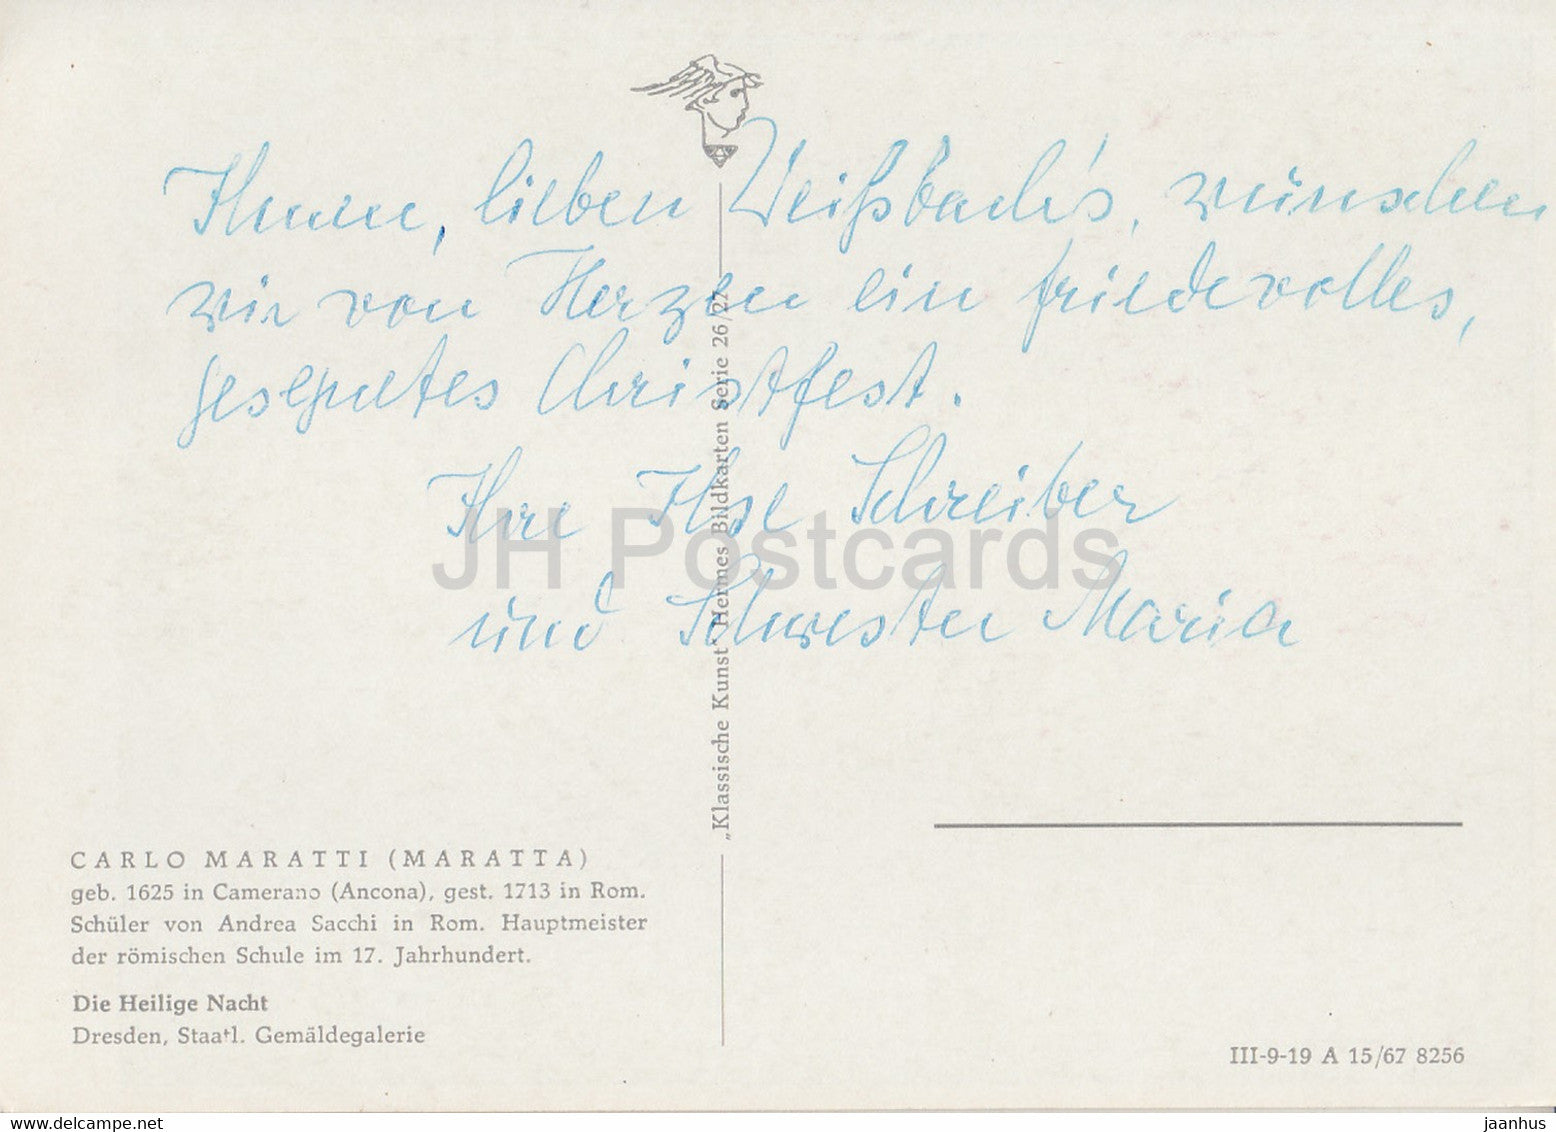 Ihnen, lieben Weißbach's, wünschen
wir von Herzen ein friedevolles,
gesegnetes Christfest.
Ihre Ilse Schreiber
und Schwester Maria
JH Postcards
„Klassische Kunst“ Hermes Bildkarten Serie 26/27
CARLO MARATTI (MARATTA)
geb. 1625 in Camerano (Ancona), gest. 1713 in Rom.
Schüler von Andrea Sacchi in Rom. Hauptmeister
der römischen Schule im 17. Jahrhundert.
Die Heilige Nacht
Dresden, Staatl. Gemäldegalerie
III-9-19 A 15/67 8256
www.delcampe.net
jaanhus